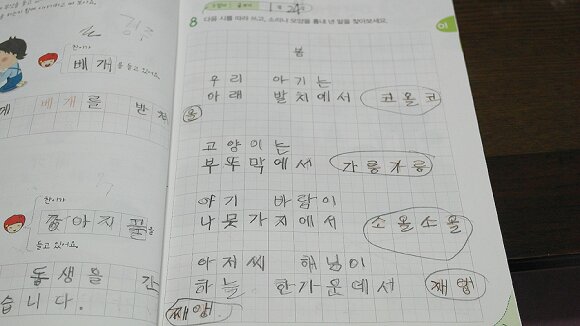 찬이가
베개 을 들고 있어요.
베개 를 받
찬이가
강아지풀 을
들고 있어요.
동생을 간
습니다.
8 다음 시를 따라 쓰고, 소리나 모양을 흉내 낸 말을 찾아보세요.
봄
우리 아기는
아래 발치에서 코올코
올
고양이는
부뚜막에서 가릉가릉
아기 바람이
나뭇가지에서 소올소올
아저씨 해님이
하늘 한가운데서 째앵
째앵.